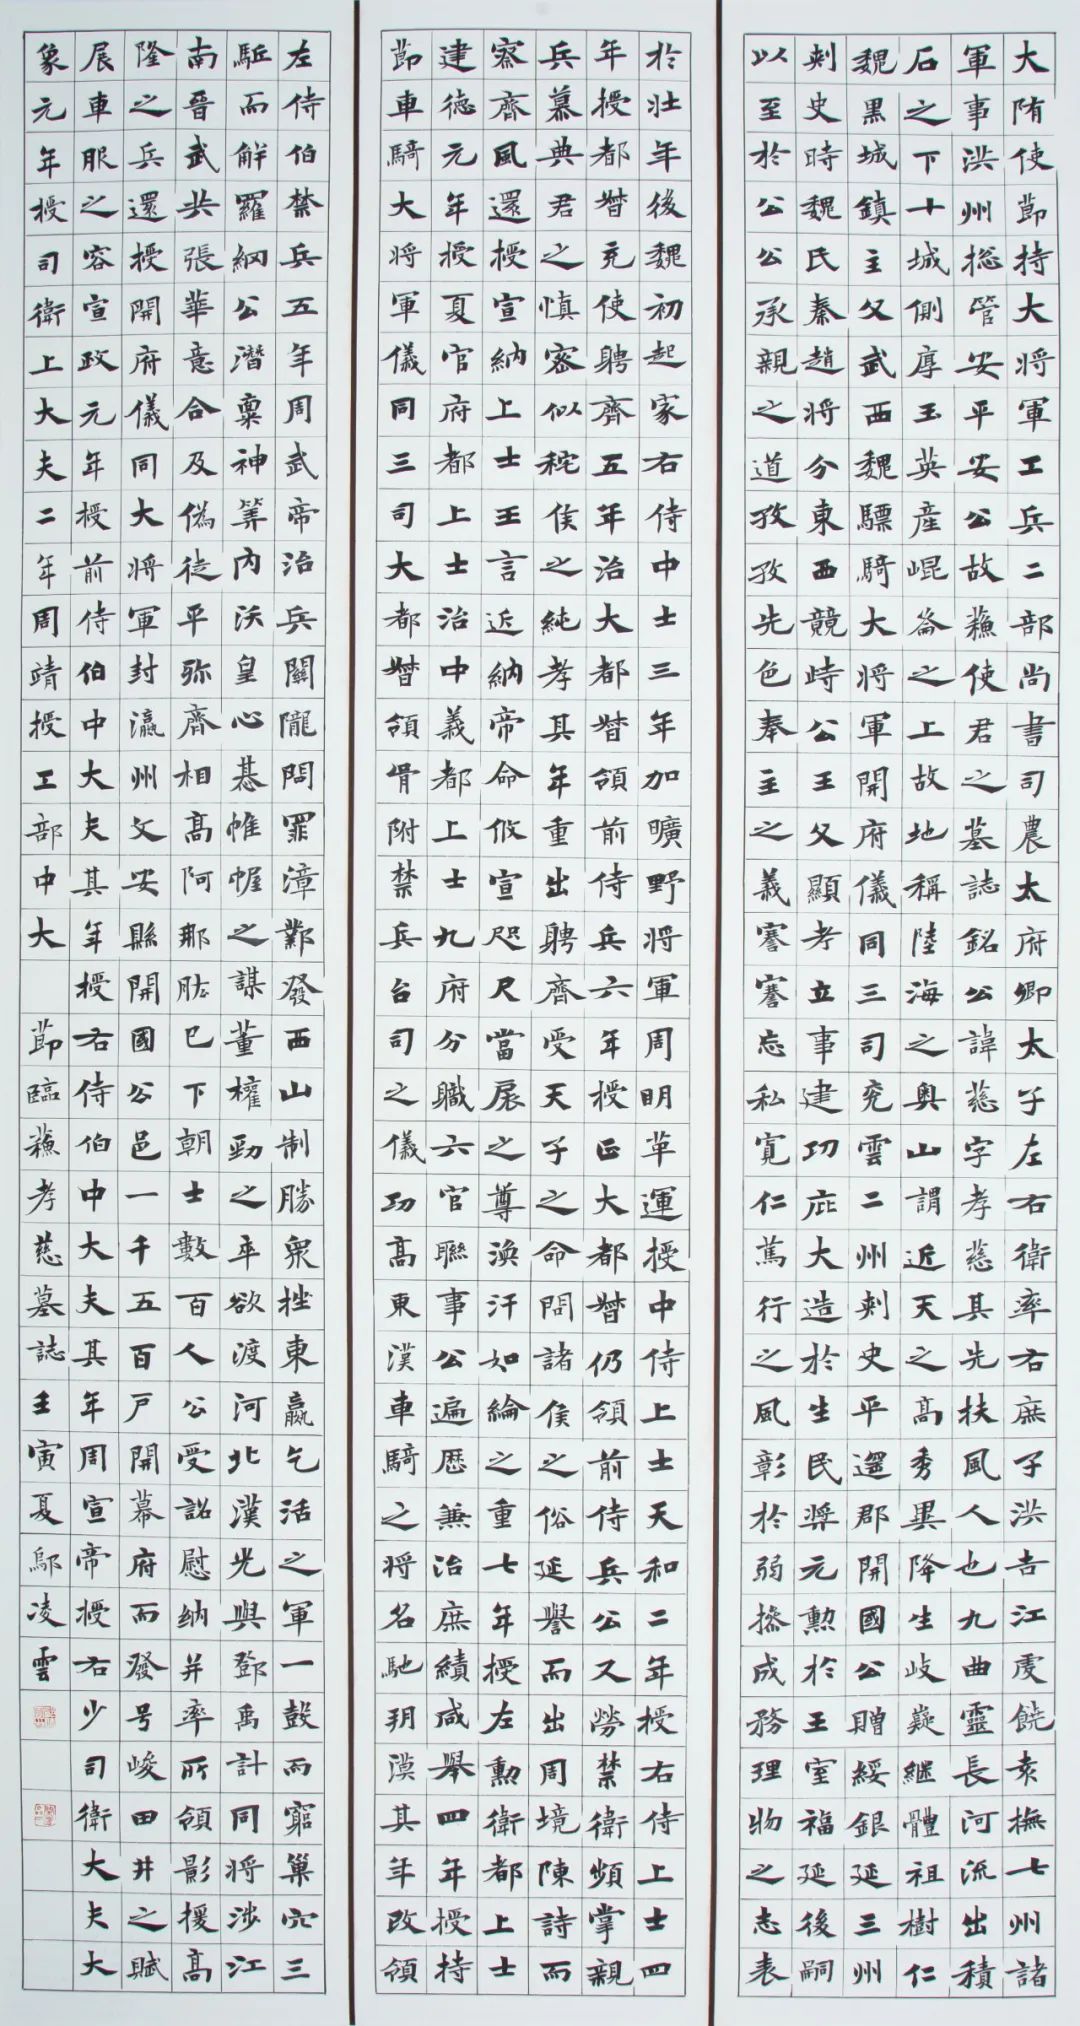 大隋使節持大將軍工兵二部尚書司農太府卿太子左右衛率右庶子洪吉江虔饒袁撫七州諸
軍事洪州揔管安平安公故蘓使君之墓誌銘公諱慈字孝慈其先扶風人也九曲靈長河流出積
石之下十城側厚玉英產崐崙之上故地稱陸海之奧山謂近天之高秀異降生岐嶷継體祖樹仁
魏黑城鎮主父武西魏驃騎大將軍開府儀同三司兖雲二州刾史平遥郡開國公贈綏銀延三州
刾史時魏氏秦趙將分東西競峙公王父顯考立事建功庇大造於生民奬元勲於王室福延後嗣
以至於公公承親之道孜孜先色奉主之義謇謇忘私寛仁篤行之風彰於弱撡成務理物之志表
於壯年後魏初起家右侍中士三年加曠野將軍周明革運授中侍上士天和二年授右侍上士四
年授都督充使聘齊五年治大都督領前侍兵六年授正大都督仍領前侍兵公又勞禁衛頻掌親
兵慕典君之慎密似秺侯之純孝其年重出聘齊受天子之命問諸侯之俗延譽而出周境陳詩而
察齊風還授宣納上士王言近納帝命攸宣咫尺當扆之尊渙汗如綸之重七年授左勲衛都上士
建德元年授夏官府都上士治中義都上士九府分職六官聯事公遍歷兼治庶績咸舉四年授持
節車騎大將軍儀同三司大都督領胥附禁兵台司之儀功高東漢車騎之將名馳朔漠其年改領
左侍伯禁兵五年周武帝治兵關隴問罪漳鄴發西山制勝衆挫東嬴乞活之軍一鼓而窮巢穴三
駈而解羅網公潛稟神筭內沃皇心基帷幄之謀董權勁之卒欲渡河北漢光與鄧禹計同將涉江
南晉武共張華意合及偽徒平弥齊相高阿那肱已下朝士數百人公受詔慰納并率所領影援高
隆之兵還授開府儀同大將軍封瀛州文安縣開國公邑一千五百戶開幕府而發号峻田井之賦
展車服之容宣政元年授前侍伯中大夫其年授右侍伯中大夫其年周宣帝授右少司衛大夫大
象元年授司衛上大夫二年周靖授工部中大 節臨蘓孝慈墓誌壬寅夏鄔凌雲